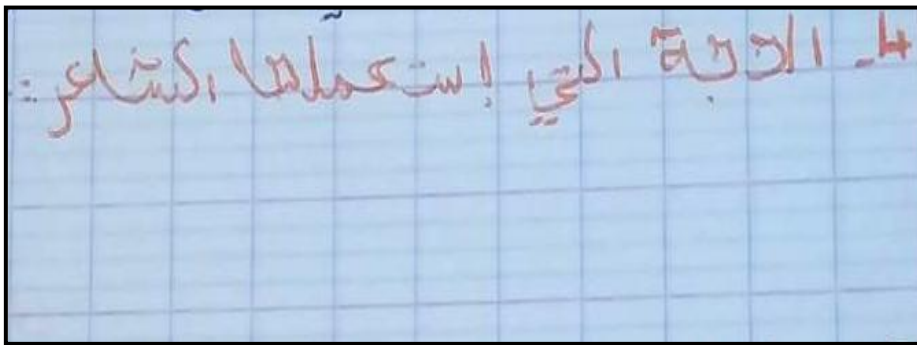 4- الحجة التي إستعملها الشاعر: